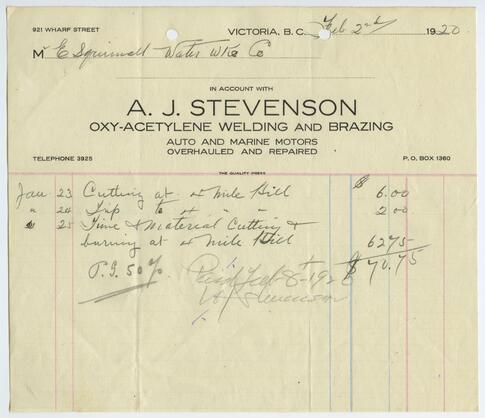 921 WHARF STREET
VICTORIA, B. C. Feb 2nd 1920
M E Squimalt Water Wks Co
IN ACCOUNT WITH
A. J. STEVENSON
OXY-ACETYLENE WELDING AND BRAZING
AUTO AND MARINE MOTORS
OVERHAULED AND REPAIRED
TELEPHONE 3925 P. O. BOX 1360
THE QUALITY PRESS
Jan 23 Cutting at 4 Mile Hill $ 6.00
" 24 Trip to 4 " " 2 00
25 Time & Material Cutting &
burning at 4 Mile Hill 62 75
P.G. 50% $ 70.75
Paid Feb 8 - 1920
Stevenson